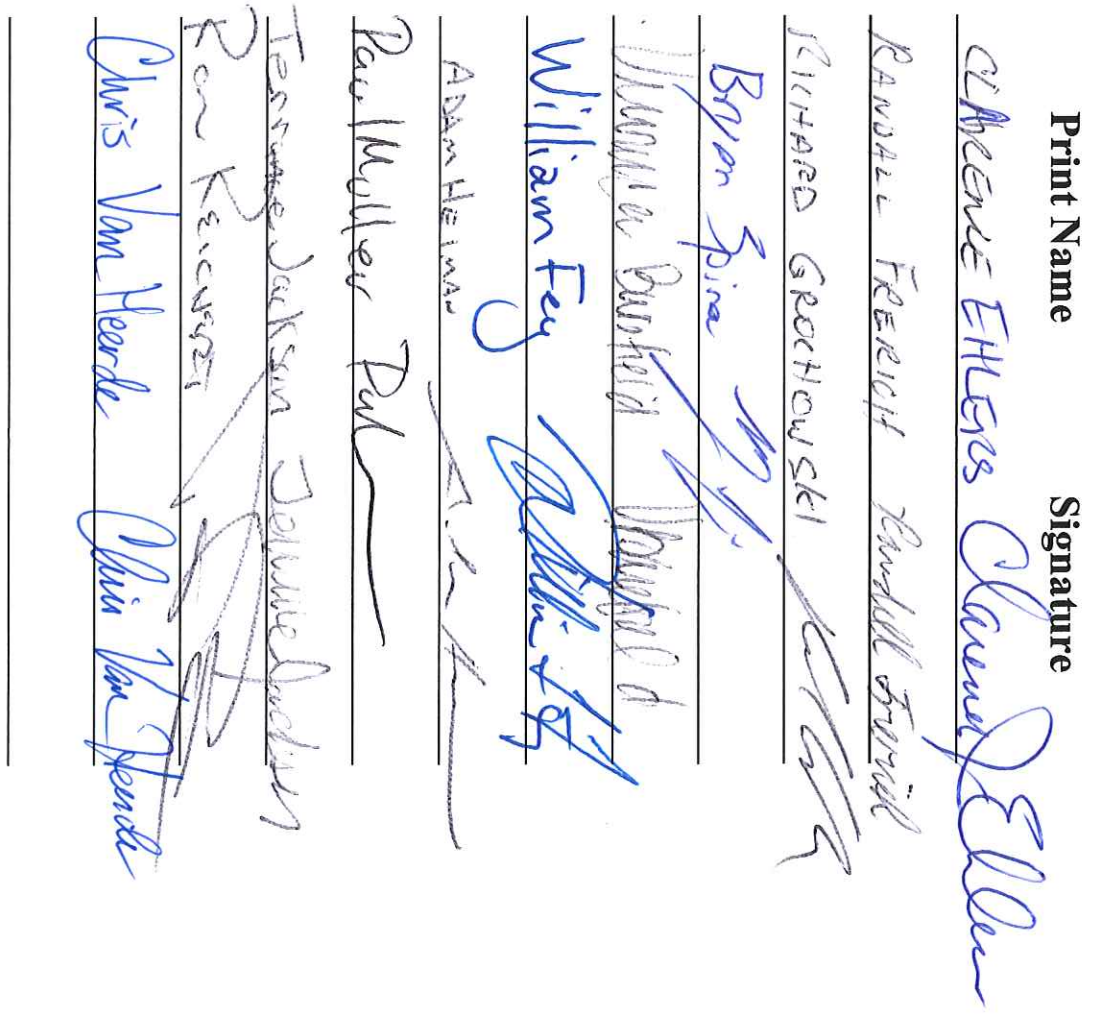 Print Name Signature
CLARENCE EHLERS Clarence J Ehlers
RANDALL FRERICH Randall Frerich
RICHARD GROCHOWSKI
Bryon Spira
William Fey William Fey
ADAM HEIMAN
Paul Muller Paul
Terrance Jackson Terrance Jackson
Ron
Chris Van Heerde Chris Van Heerde